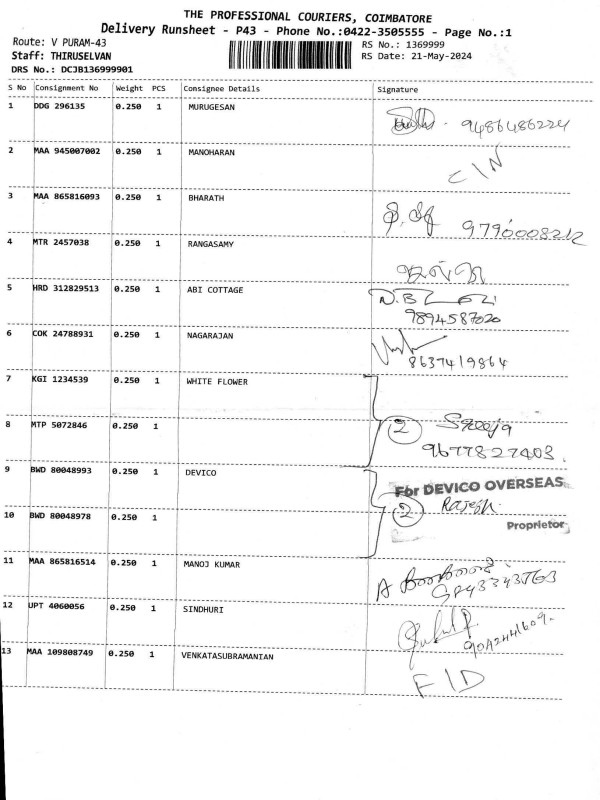 THE PROFESSIONAL COURIERS, COIMBATORE
Delivery Runsheet - P43 - Phone No.:0422-3505555 - Page No.:1
Route: V PURAM-43
RS No.: 1369999
Staff: THIRUSELVAN
RS Date: 21-May-2024
DRS No.: DCJB136999901
S No Consignment No Weight PCS Consignee Details Signature
1 DDG 296135 0.250 1 MURUGESAN
9486486224
2 MAA 945007002 0.250 1 MANOHARAN
C/N
3 MAA 865816093 0.250 1 BHARATH
9790008212
4 MTR 2457038 0.250 1 RANGASAMY
5 HRD 312829513 0.250 1 ABI COTTAGE
9894587020
6 COK 24788931 0.250 1 NAGARAJAN
8637419864
7 KGI 1234539 0.250 1 WHITE FLOWER
8 MTP 5072846 0.250 1
2 Sreeja
9677827403.
9 BWD 80048993 0.250 1 DEVICO
For DEVICO OVERSEAS
2 Rajesh
10 BWD 80048978 0.250 1
Proprietor
11 MAA 865816514 0.250 1 MANOJ KUMAR
12 UPT 4060056 0.250 1 SINDHURI
9042441609.
13 MAA 109808749 0.250 1 VENKATASUBRAMANIAN
F/D